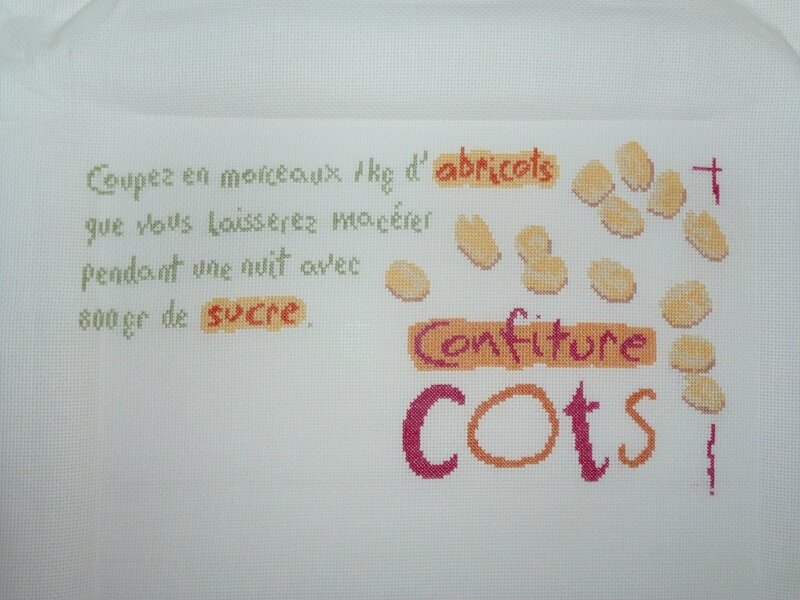 Coupez en morceaux 1kg d'abricots
que vous laisserez macérer
pendant une nuit avec
800gr de sucre.
Confiture
cots